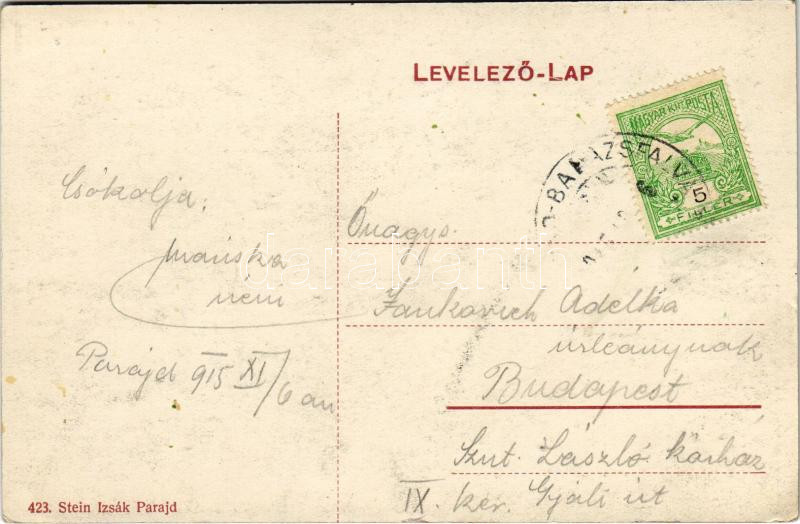 LEVELEZŐ-LAP
MAGYAR KIR. POSTA
5
FILLÉR
BALÁZSFALVA
Csókolja,
mariska
néni
Parajd 915 XI/6 án
Őnagys.
Jankovich Adélka
úrleánynak
Budapest
Sznt. László kórház
IX. ker. Gyáli út
423. Stein Izsák Parajd
darabanth